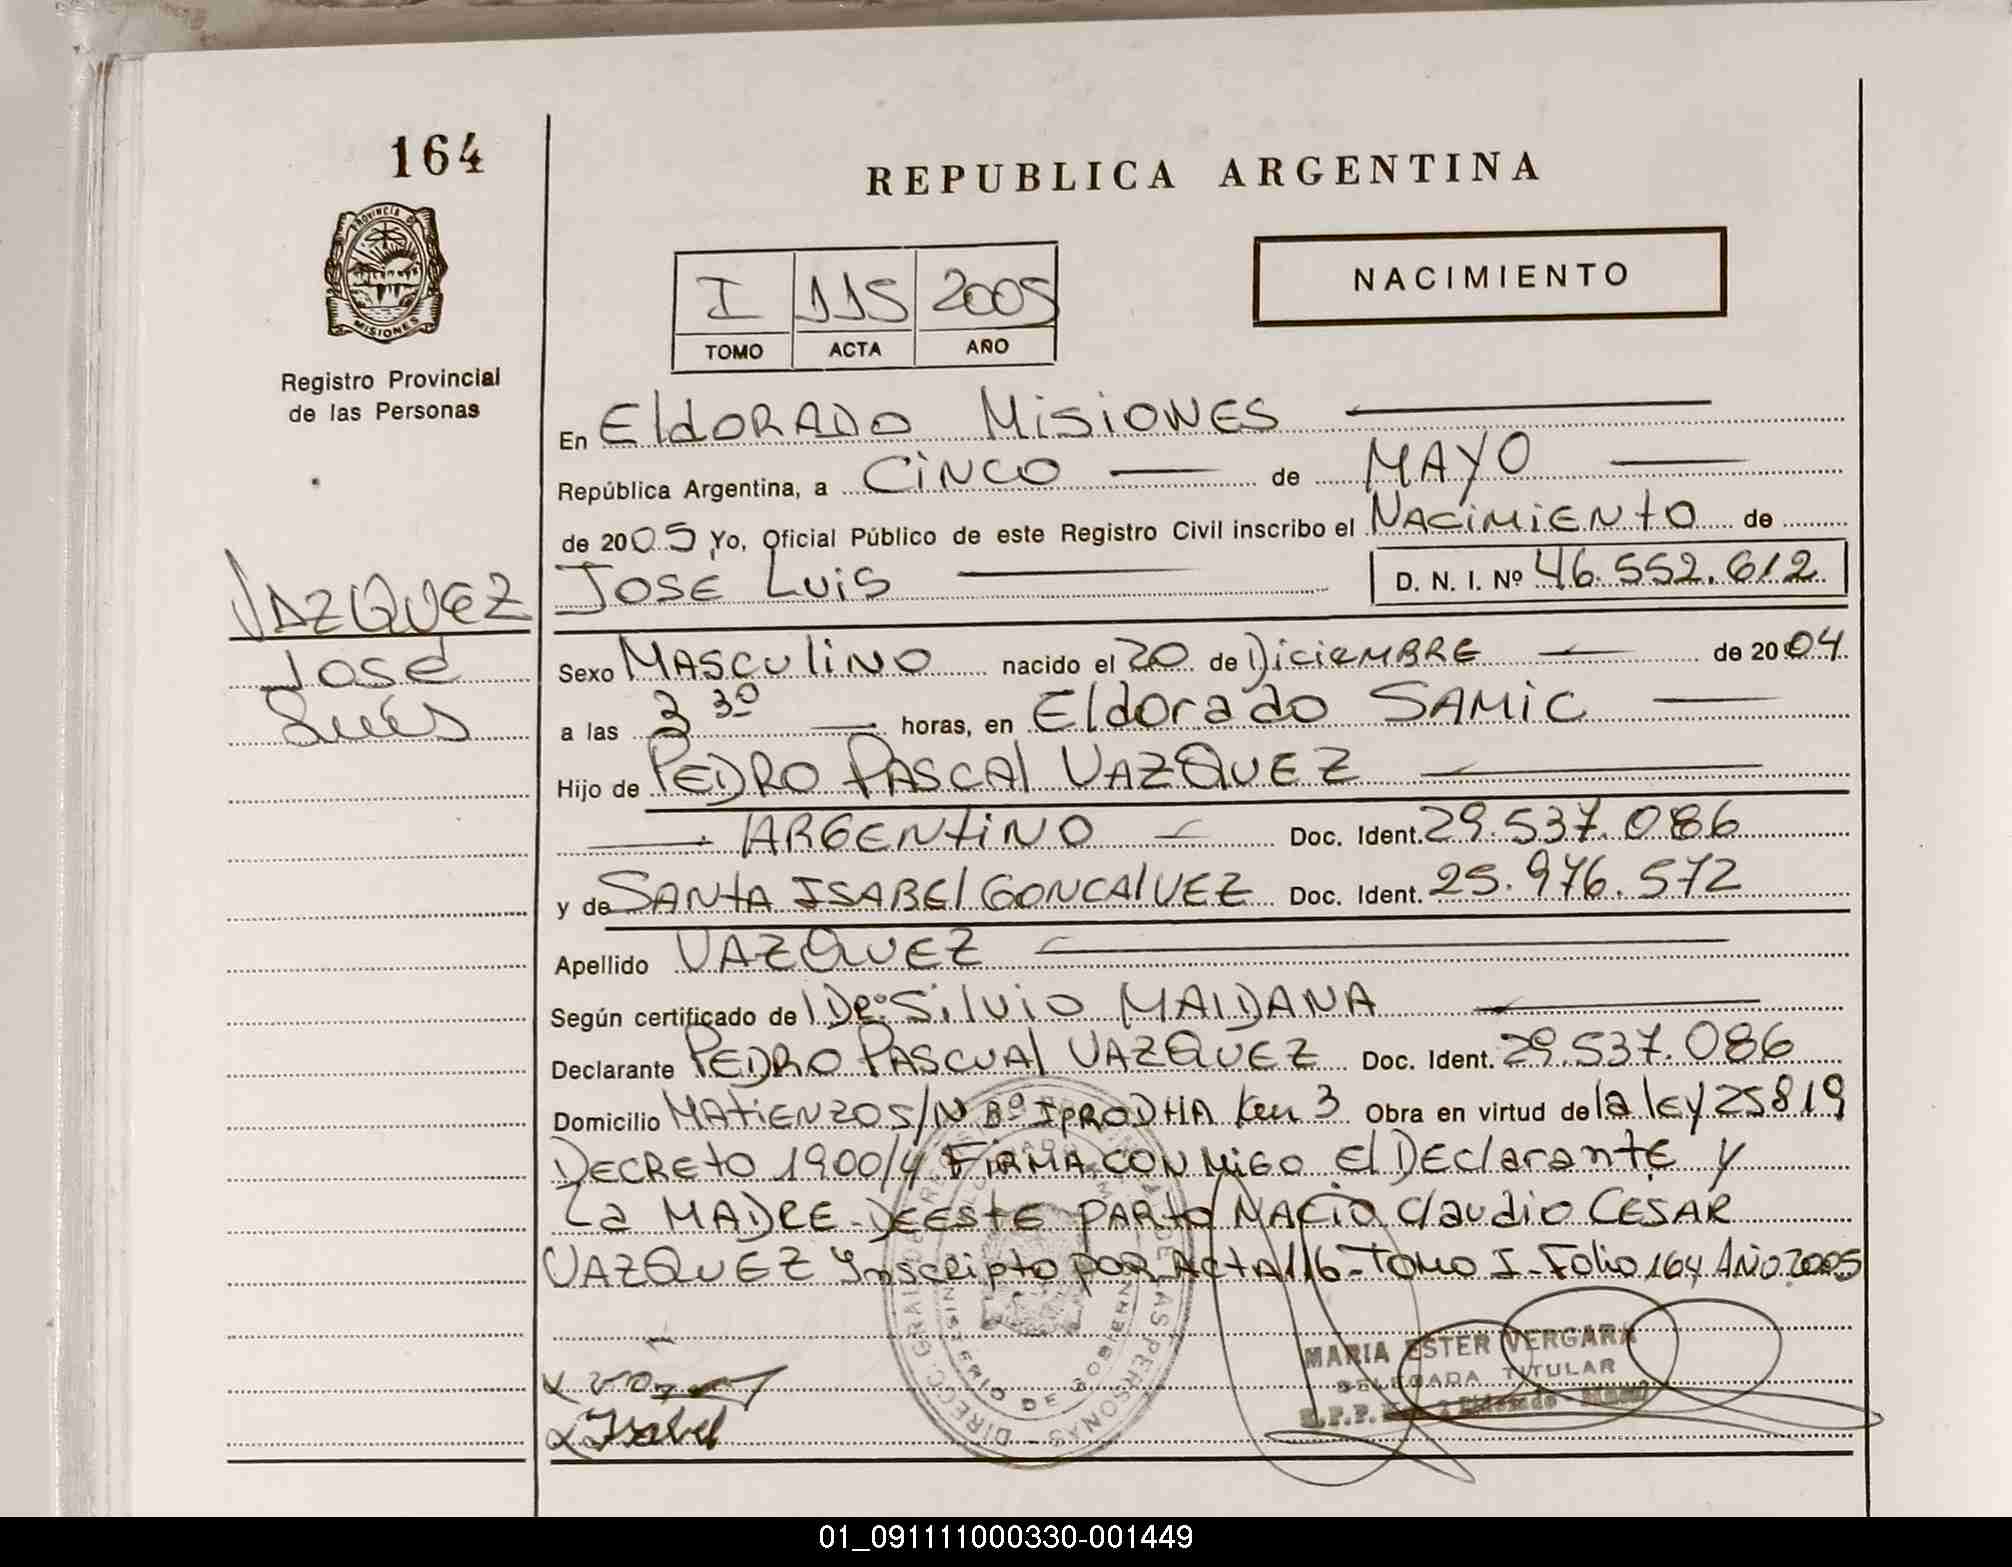 164
REPUBLICA ARGENTINA
PROVINCIA DE
MISIONES
NACIMIENTO
I 115 2005
TOMO ACTA AÑO
Registro Provincial
de las Personas
En ElDORADO MISIONES
República Argentina, a CINCO de MAYO
de 2005 Yo, Oficial Público de este Registro Civil inscribo el NACIMIENTO de
JOSE LUIS D. N. I. Nº 46.552.612
VAZQUEZ
José
Luis
Sexo MASCULINO nacido el 20 de DICIEMBRE de 2004
a las 3 30 horas, en Eldorado SAMIC
Hijo de PEDRO PASCAl VAZQUEZ
ARGENTINO Doc. Ident. 29.537.086
y de SANTA ISABEl GONCAlVEZ Doc. Ident. 25.976.572
Apellido VAZQUEZ
Según certificado de DR. Silvio MAIDANA
Declarante PEDRO PASCUAl VAZQUEZ Doc. Ident. 29.537.086
Domicilio MATIENZO S/N Bº IPRODHA Km 3 Obra en virtud de la lEY 25819
DECRETO 1900/4 FIRMA CONMIGO El DEClarante y
La MADRE-DE ESTE PARTO NACIO Claudio CESAR
VAZQUEZ Inscripto POR ACTA 116-TOMO I-Folio 164 AÑO 2005
MARIA ESTER VERGARA
DELEGADA TITULAR
Isabel
01_091111000330-001449